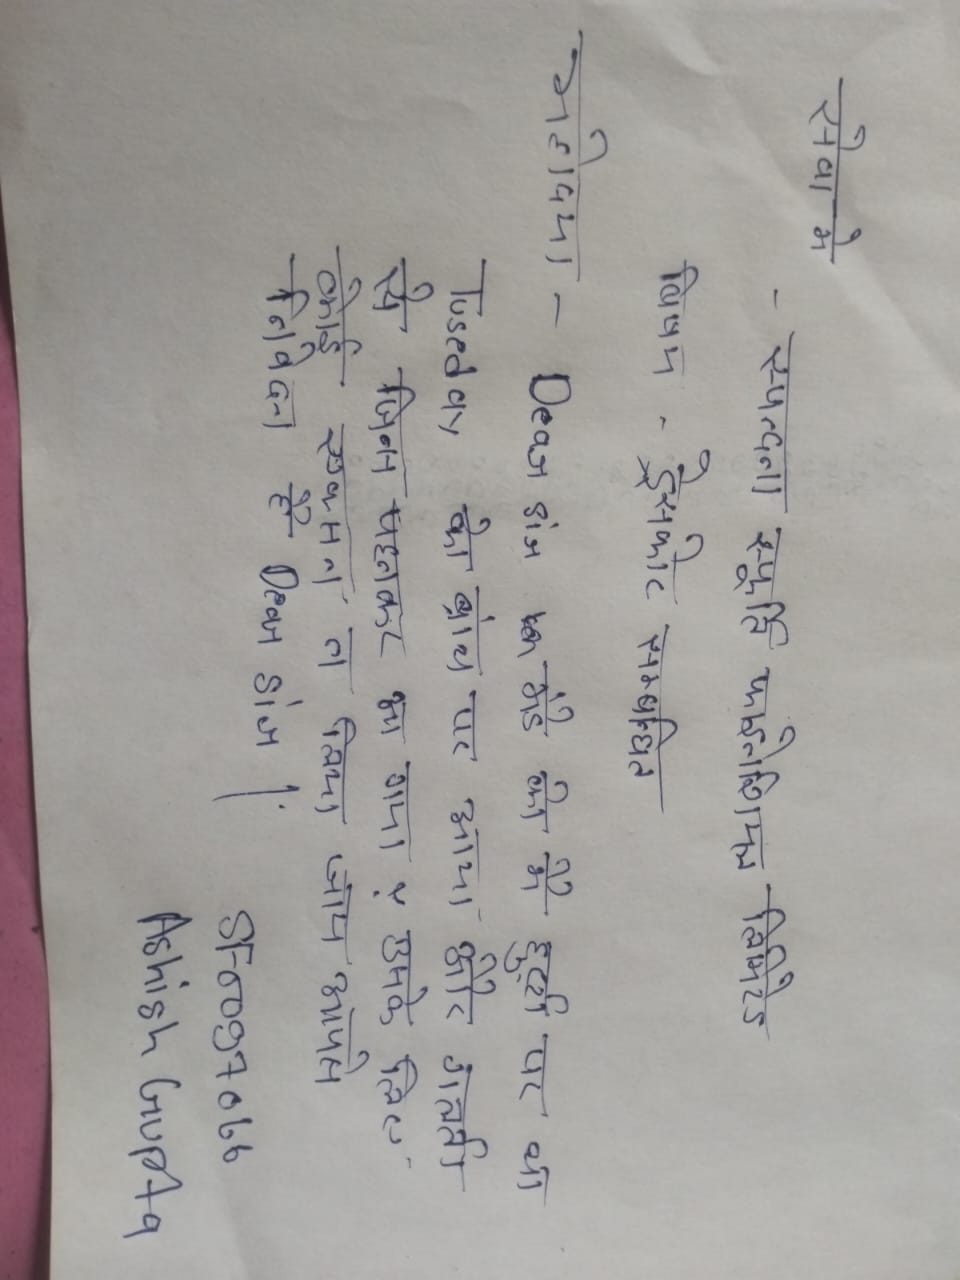 सेवा मे
- स्पन्दना स्फूर्ति फाईनेंशियल लिमिटेड
विषय - ड्रेसकोट सम्बन्धित
महोदया - Dear सोम मंडे को मै छुट्टी पर था
Tuseday को ब्रांच पर आया और गलती
से जिन्स पहनकर आ गया इसके लिए
कोई एक्सन न लिया जाय आपसे
निवेदन है Dear
SF0097066
Ashish Gupta